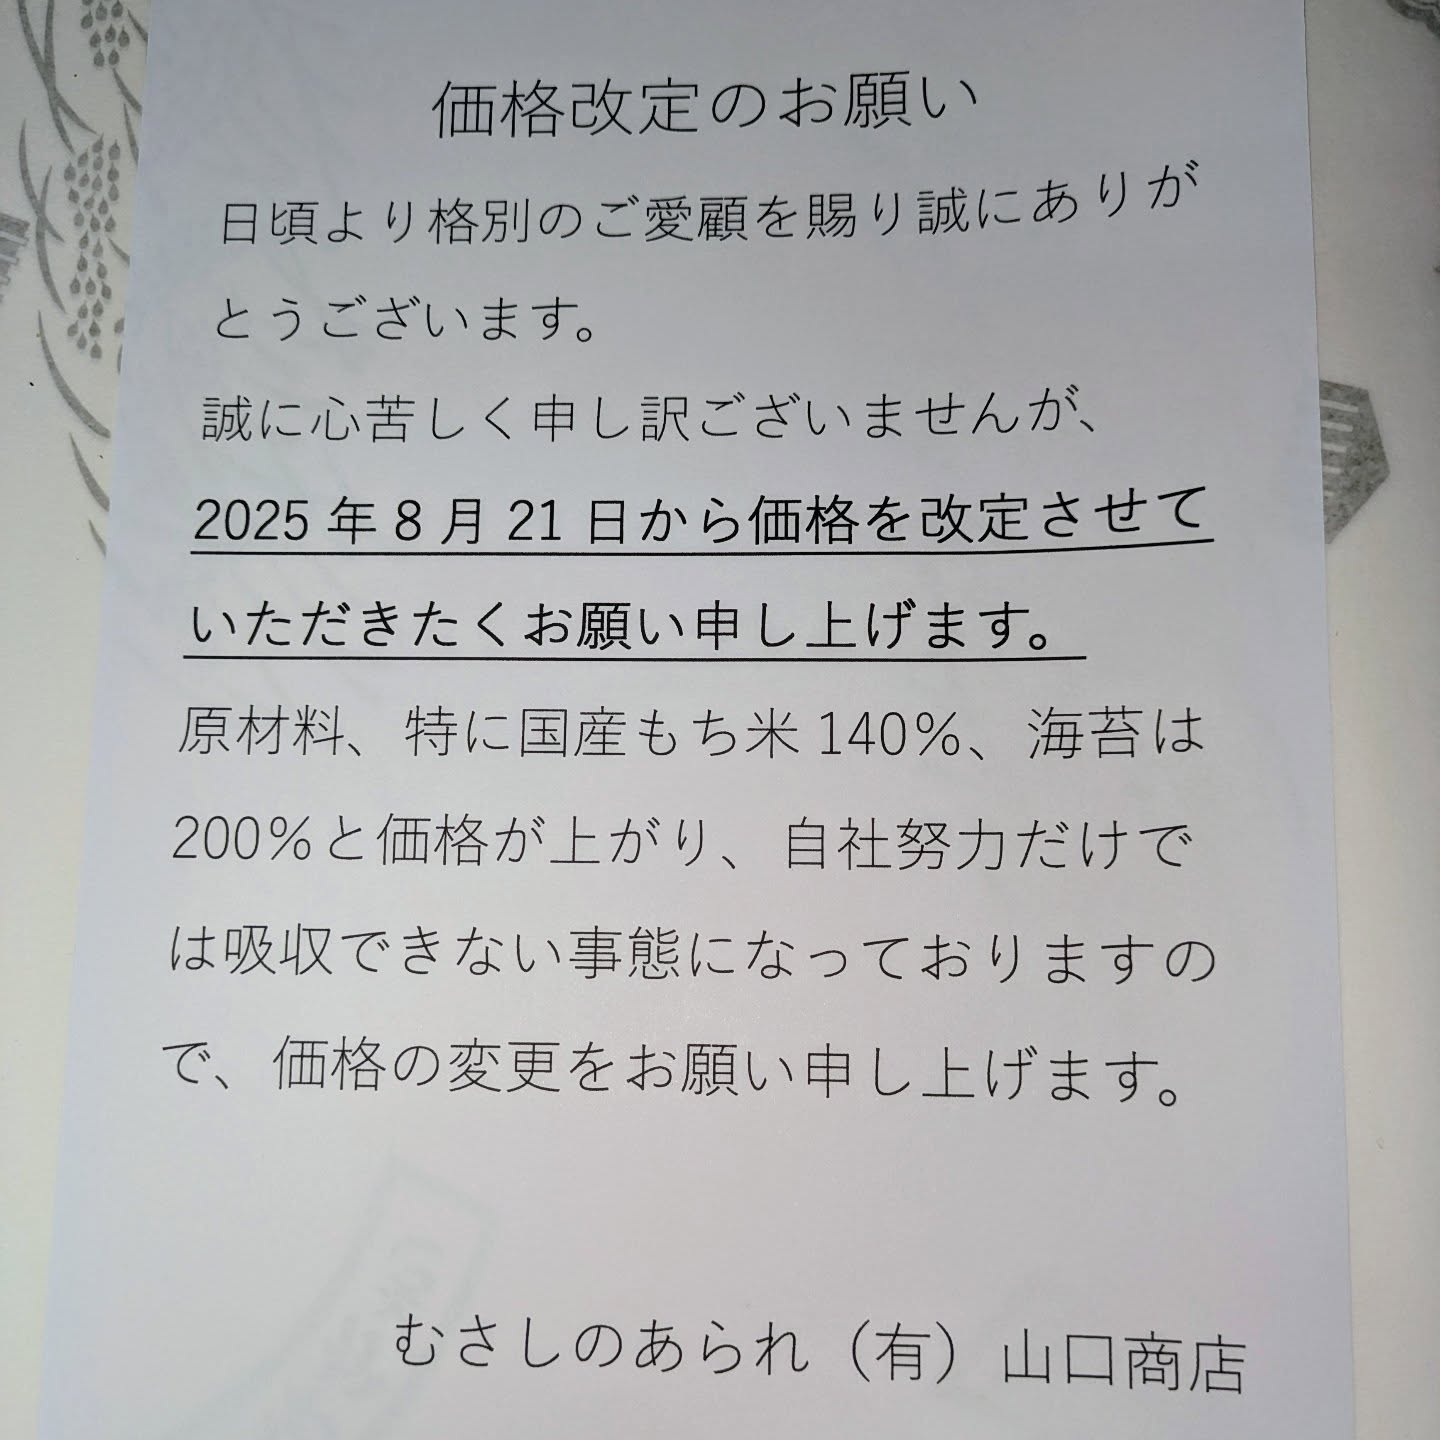 価格改定のお願い
日頃より格別のご愛顧を賜り誠にありが
とうございます。
誠に心苦しく申し訳ございませんが、
2025年8月21日から価格を改定させて
いただきたくお願い申し上げます。
原材料、特に国産もち米140%、海苔は
200%と価格が上がり、自社努力だけで
は吸収できない事態になっておりますの
で、価格の変更をお願い申し上げます。
むさしのあられ（有）山口商店